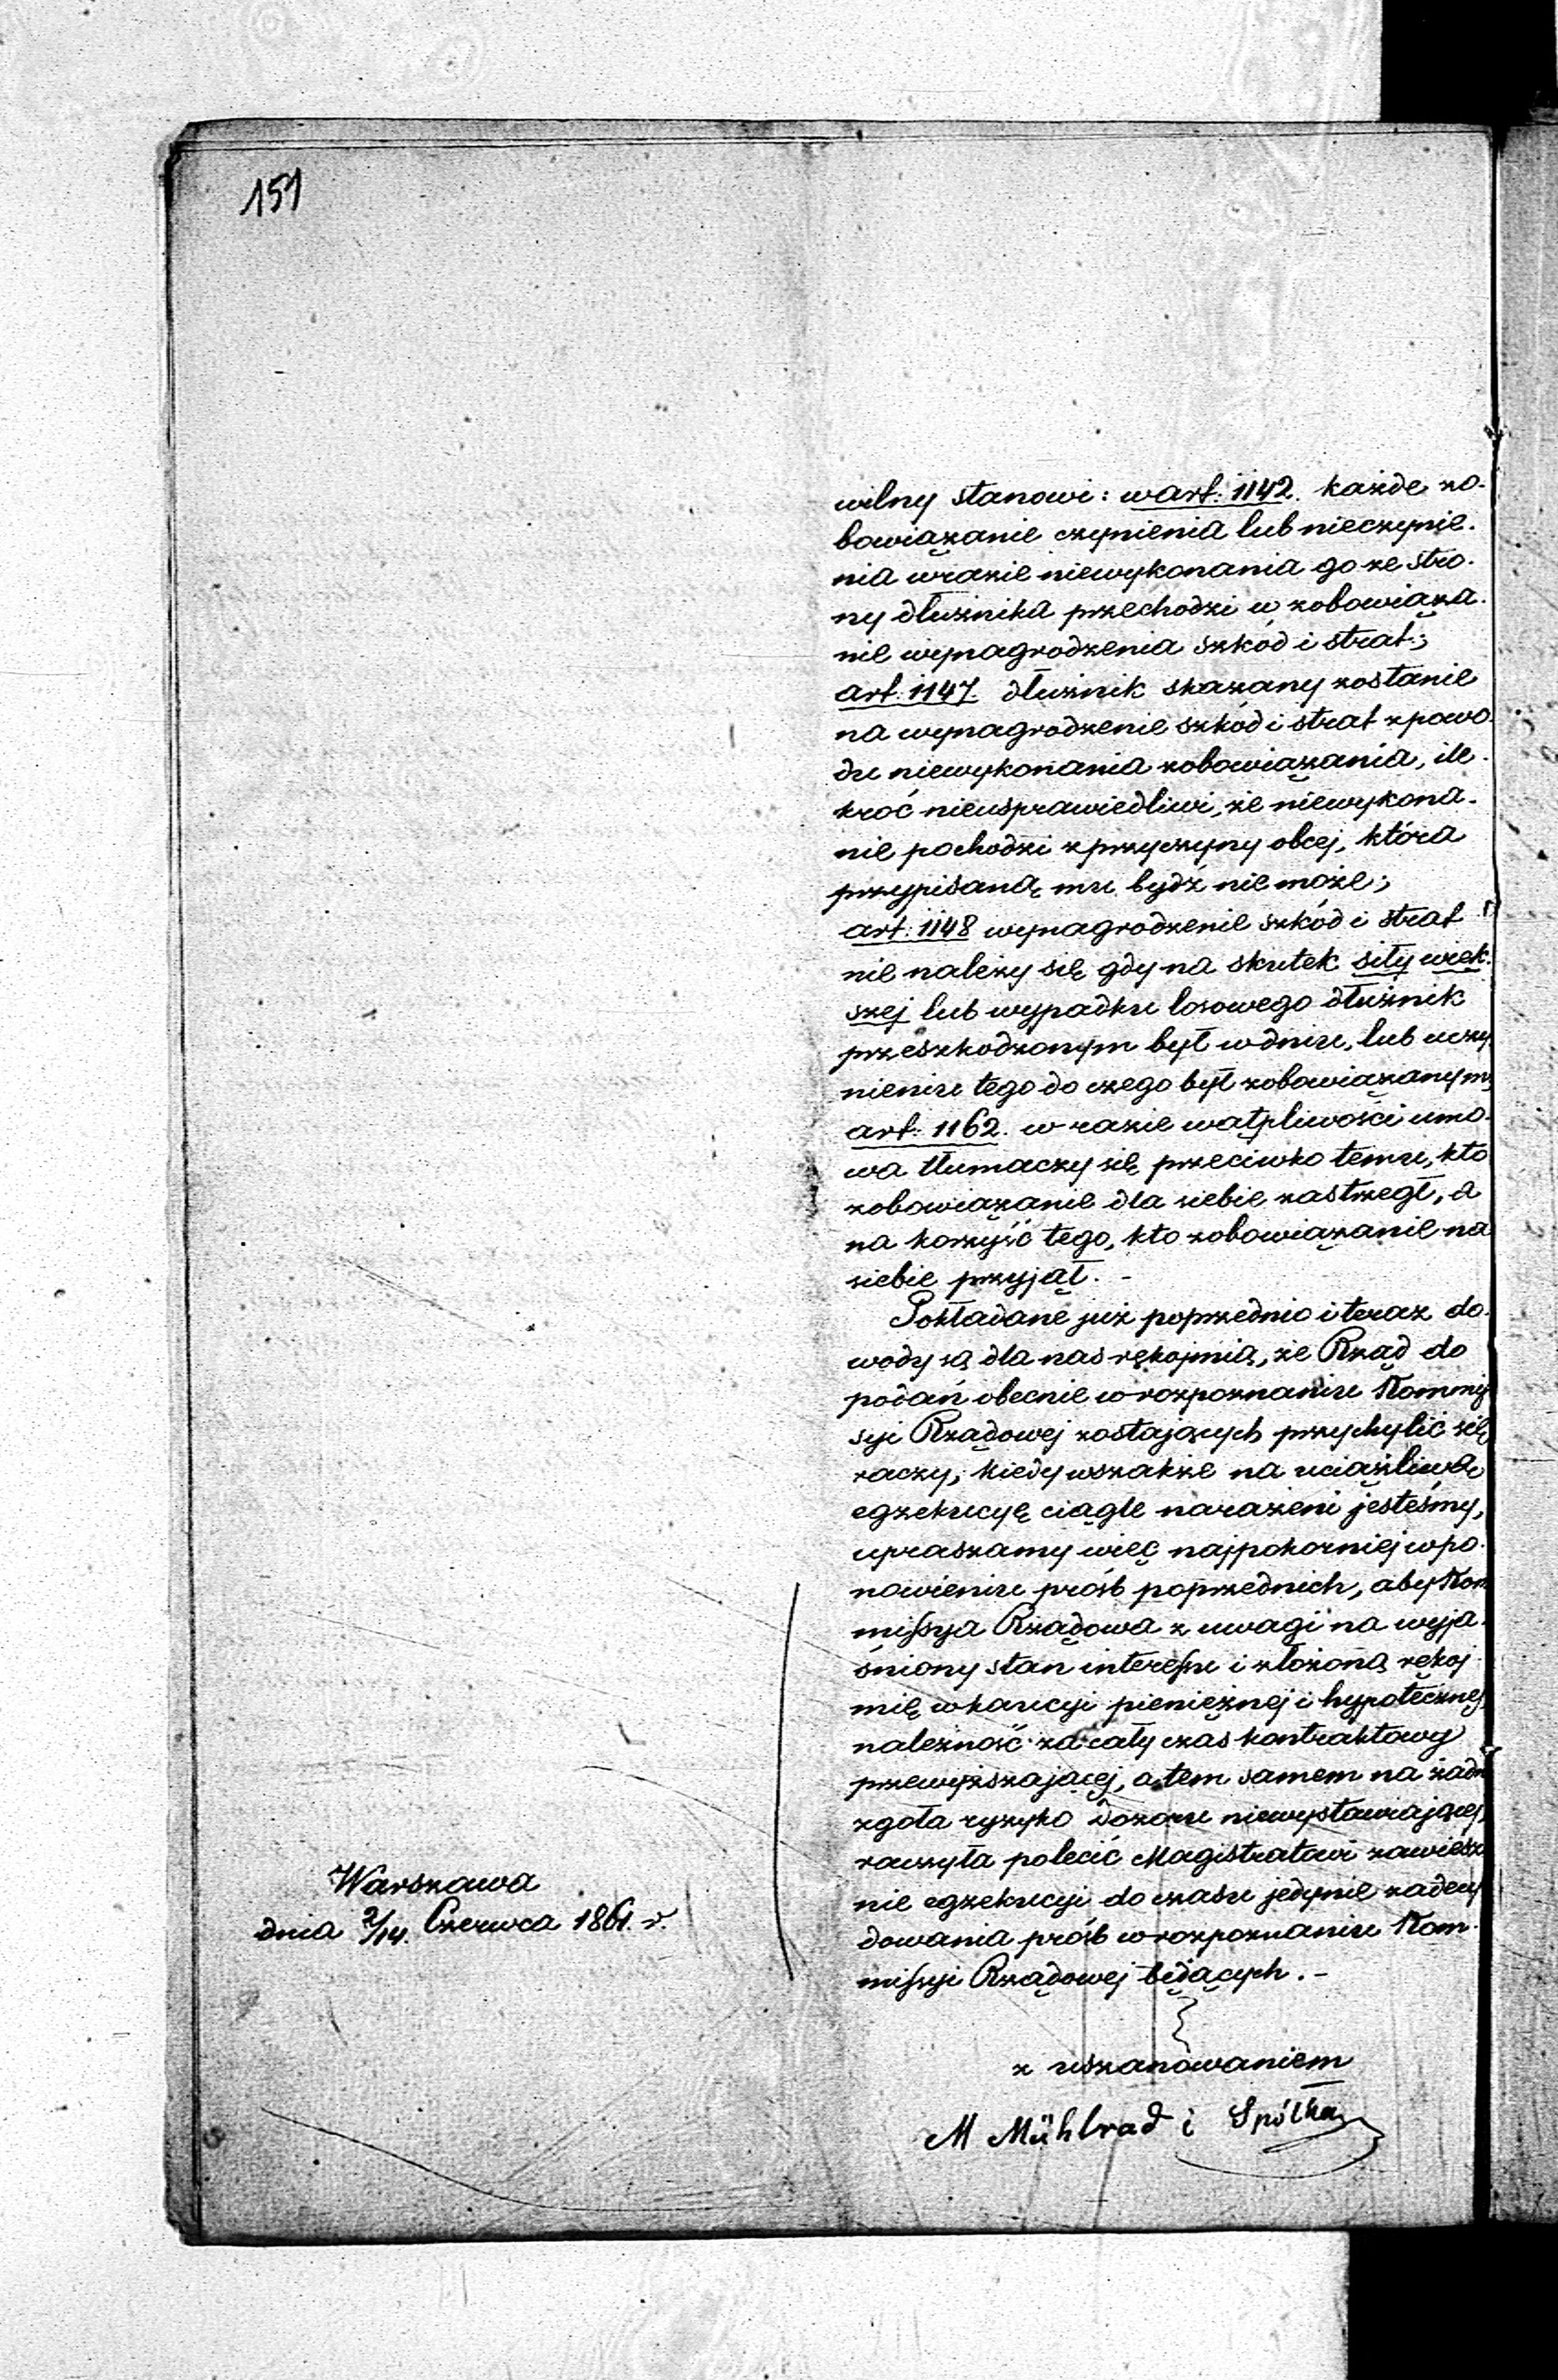 151
wilny stanowi: wart: 1142. każde zo-
bowiązanie czynienia lub nieczynie-
nia wrazie niewykonania go ze stro-
ny dłużnika przechodzi w zobowiąza-
nie wynagrodzenia szkód i strat;
art: 1147. dłużnik skazany zostanie
na wynagrodzenie szkód i strat zpowo-
du niewykonania zobowiązania, ile-
kroć nieusprawiedliwi, że niewykona-
nie pochodzi zprzyczyny obcej, która
przypisaną mu bydź nie może;
art: 1148 wynagrodzenie szkód i strat
nie należy się gdy na skutek siły więk-
szej lub wypadku losowego dłużnik
przeszkodzonym był wdniu, lub uczy
nieniu tego do czego był zobowiązanym;
art: 1162. w razie wątpliwości umo-
wa tłumaczy się przeciwko temu, kto
zobowiązanie dla siebie zastrzegł, a
na korzyść tego, kto zobowiązanie na
siebie przyjął. -
Pokładane już poprzednio i teraz do-
wody są dla nas rękojmią, że Rząd do
podań obecnie w rozpoznaniu Kommis
syi Rządowej zostających przychylić się
raczy, kiedy wszakże na uciążliwą
egzekucyę ciągle narażeni jesteśmy,
upraszamy więc najpokorniej w po-
nowieniu próśb poprzednich, aby Kom
missya Rządowa z uwagi na wyja-
śniony stan interessu i złożoną rękoj-
mię wkaucyi pieniężnej i hypotecznej
należność za cały czas kontraktowy
przewyższającej, a tem samem na żadn
zgoła ryzyko Dozoru niewystawiającej,
raczyła polecić Magistratowi zawiesze
nie egzekucyi do czasu jedynie zadecy
dowania próśb w rozpoznaniu Kom-
missyi Rządowej będących. -
z uszanowaniem
M Mühlrad i Spółka
Warszawa
dnia 2/14. Czerwca 1861. r.